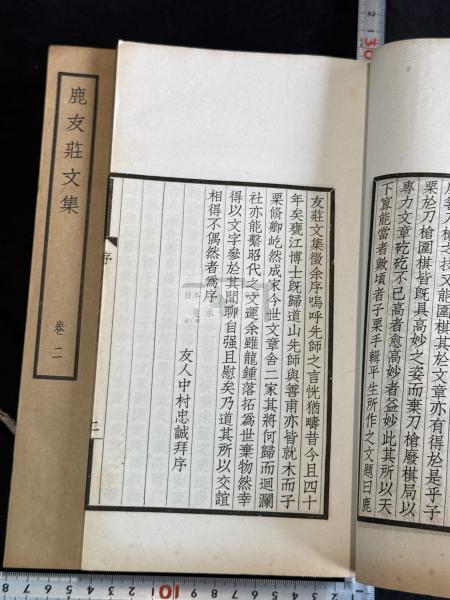 刀槍之技又能圍棋其於文章亦有得於是乎子
栗於刀槍圍棋皆既具高妙之姿而棄刀槍廢棋局以
專力文章矻矻不已高者愈高妙者益妙此其所以天
下寡能當者歟頃者子栗手輯平生所作之文題曰鹿
友莊文集徵余序嗚呼先師之言恍猶疇昔今且四十
年矣甕江博士既歸道山先師與善甫亦皆就木而子
栗脩卿屹然成家今世文章舍二家其將何歸而迴瀾
社亦能繫昭代之文運余雖龍鍾落拓爲世棄物然幸
得以文字參於其間聊自强且慰矣乃道其所以交誼
相得不偶然者爲序
友人中村忠誠拜序
序
二
鹿友莊文集
卷二